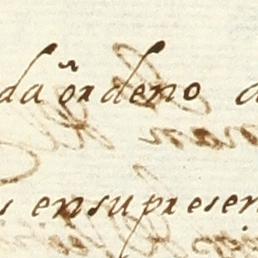 da ordeno
s ensupresen